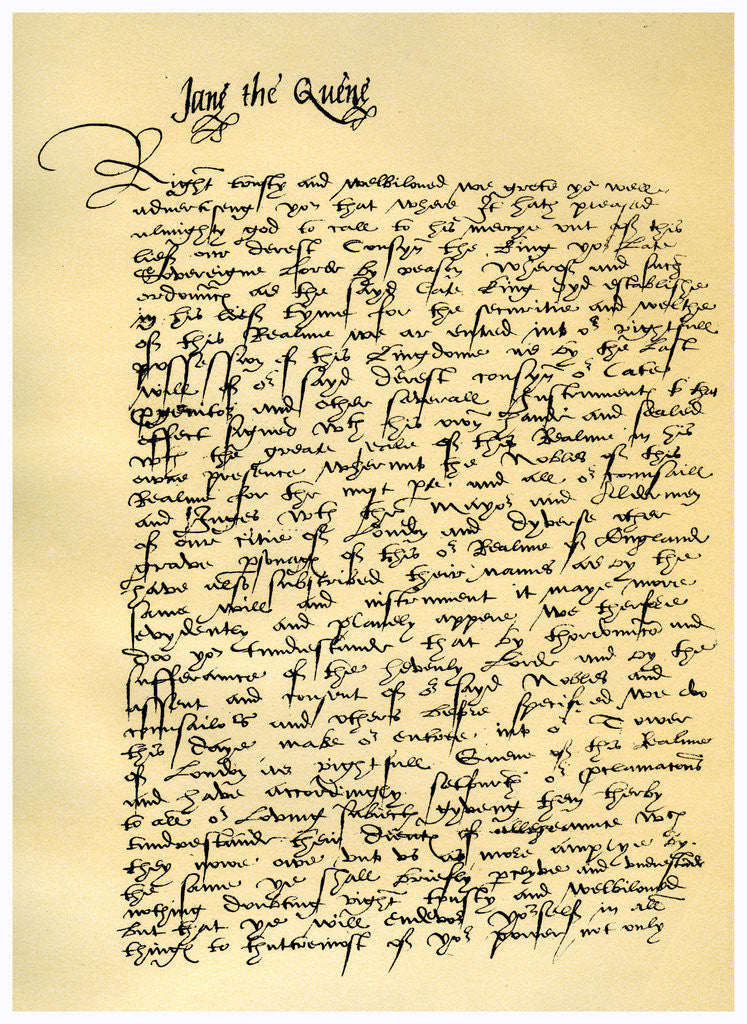 Jane the Quene
Right trusty and welbiloved we grete you well
advertiseng you that where it hath pleased
almighty god to call to his mercye out of this
lief our derest Cousyn the King your late
Sovereigne Lorde by reason wherof and suche
ordonnce as the sayd late King dyd establishe
in his lief tyme for the securitie and welthe
of this Realme we ar entred into or rightfull
possession of this Kingdome as by the last
will of or sayd derest cousyn or late
pgenitor and other severall Instruments to that
effect signed wth his own hande and sealed
wth the greate seale of this Realme in his
owne presence wherunto the Nobles of this
Realme for the most pte and all or counsaill
and Juges wth the Mayor and Aldermen
of our citie of London and dyverse other
grave psonages of this or Realme of England
have also subscribed their names as by the
same will and instrument it maye more
evydently and planely appere we therfore
doo you tundrestande that by thordonnce and
sufferaunce of the hevenly Lorde and by the
assent and consent of or sayd Nobles and
counsailors and others before specified we do
this daye make or entree into or Tower
of London as rightfull Quene of this Realme
and have accordingly setfurth or pclamacons
to all or loving subiects gyveng them therby
tundrestande their dueties of allegeaunce wch
they nowe owe unto us as more amplye by
the same ye shall briefly pceyve and understande
nothing doubting right trusty and welbiloved
but that ye will endevor yorself in all
things to thuttermost of yor power not only